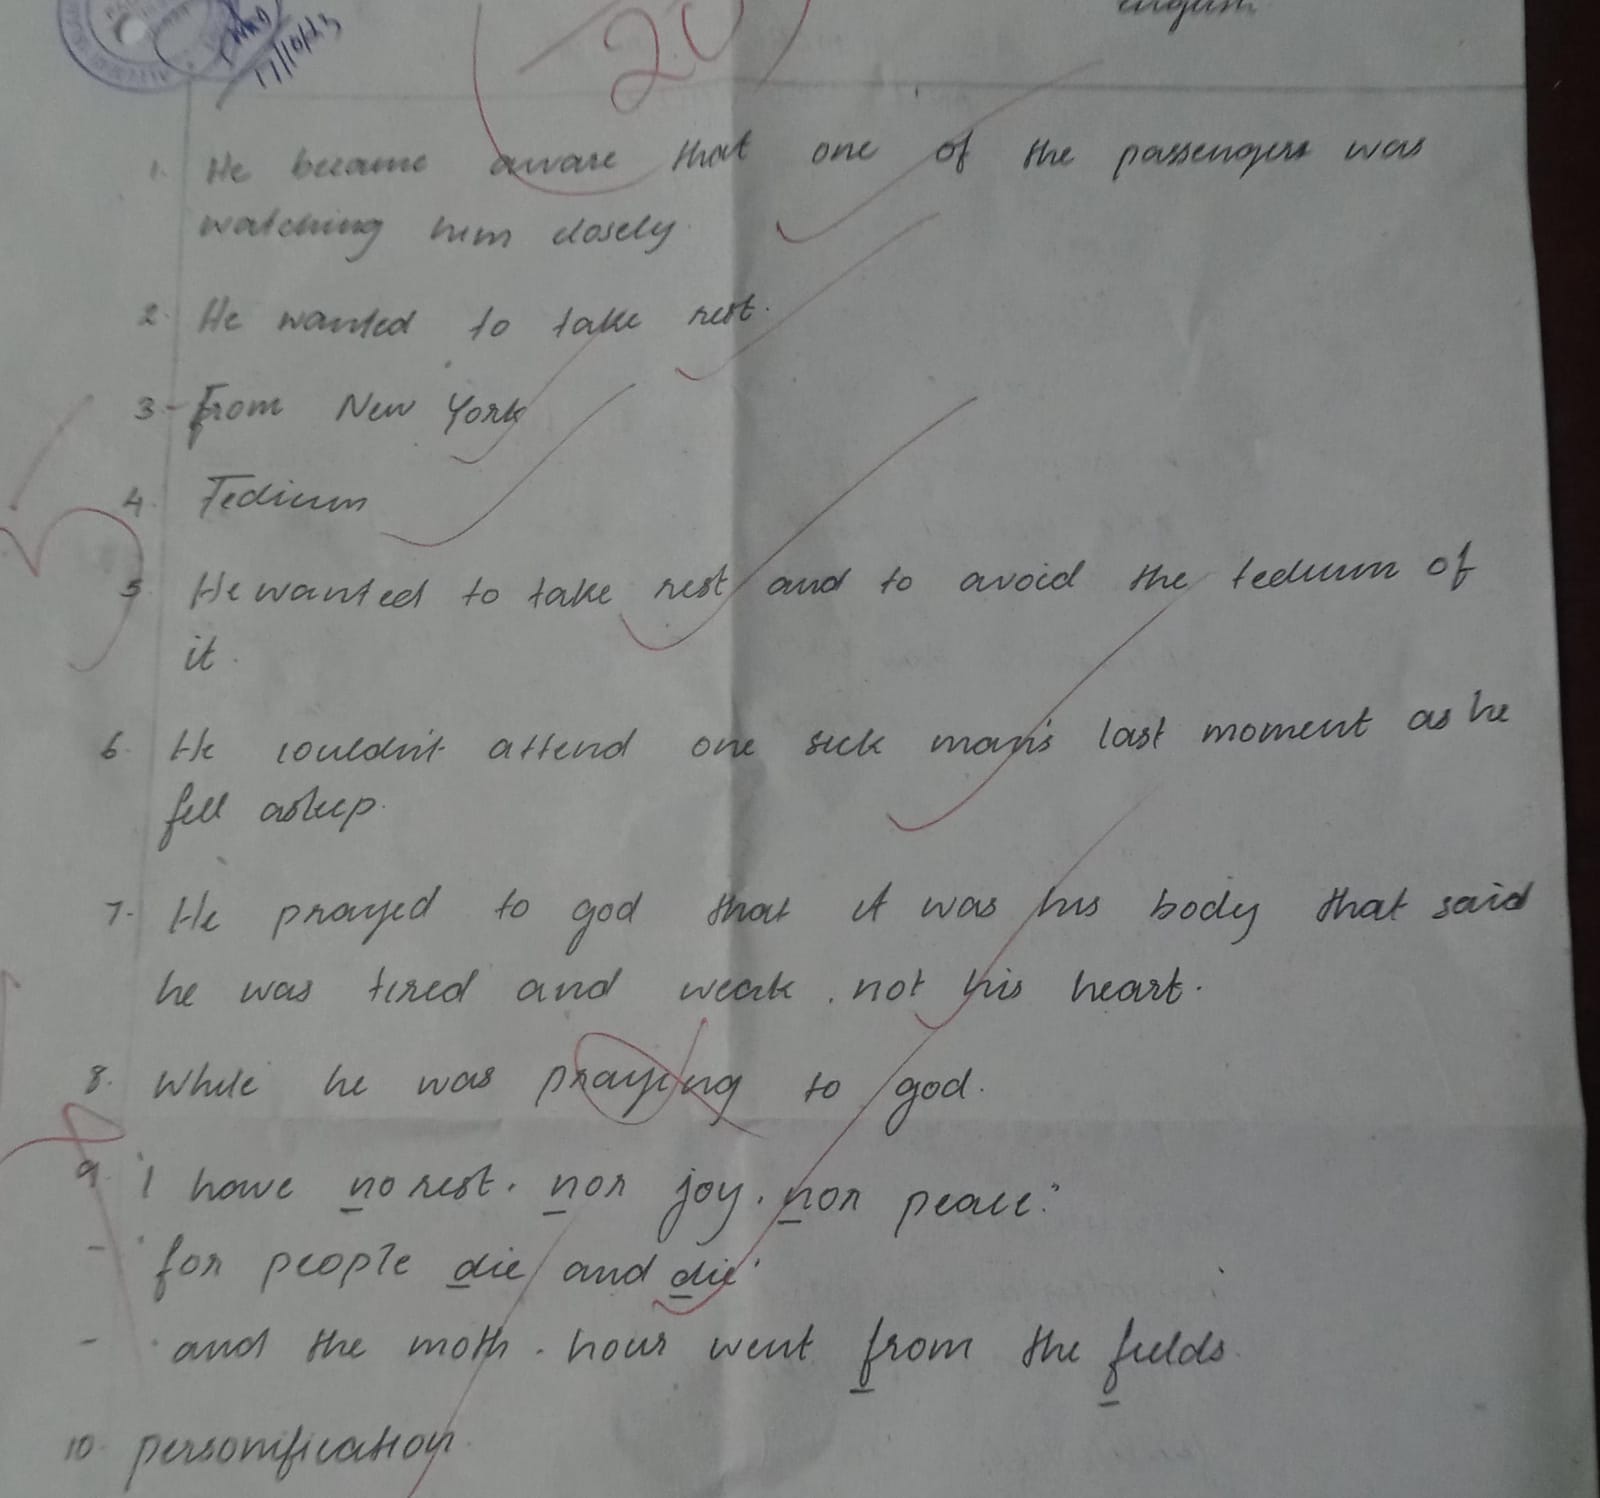 english
17/10/23
20
1. He became aware that one of the passengers was
watching him closely.
2. He wanted to take rest.
3- From New York
4. Tedium
5. He wanted to take rest and to avoid the tedium of
it.
6. He couldn't attend one sick man's last moment as he
fell asleep.
7. He prayed to god that it was his body that said
he was tired and weak, not his heart.
8. While he was praying to god.
9. 'I have no rest, nor joy, nor peace'.
- 'for people die and die'
- 'and the moth-hour went from the fields.
10. personification.